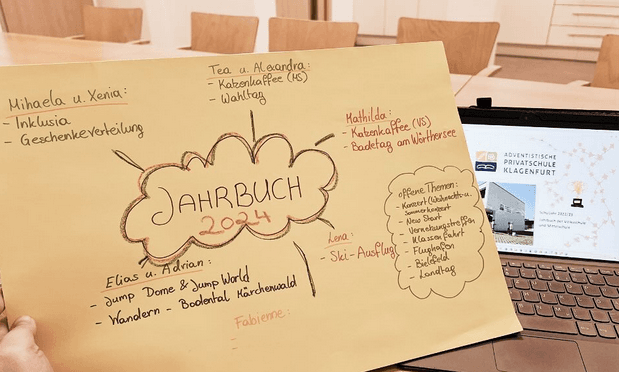 Tea u. Alexandra:
- Katzenkaffee (MS)
- Wahltag
Mihaela u. Xenia:
- Inklusia
- Geschenkeverteilung
Mathilda:
- Katzenkaffee (VS)
- Badetag am Wörthersee
JAHRBUCH
2024
offene Themen:
- Konzert (Weihnacht- u.
Sommerkonzert
- New Start
- Vernetzungstreffen
- Klassenfahrt
- Flughafen
- Bielefeld
- Landtag
Lena:
- Ski-Ausflug
Elias u. Adrian:
- Jump Dome & Jump World
- Wandern - Bodental Märchenwald
Fabienne:
-
-
ADVENTISTISCHE
PRIVATSCHULE
KLAGENFURT